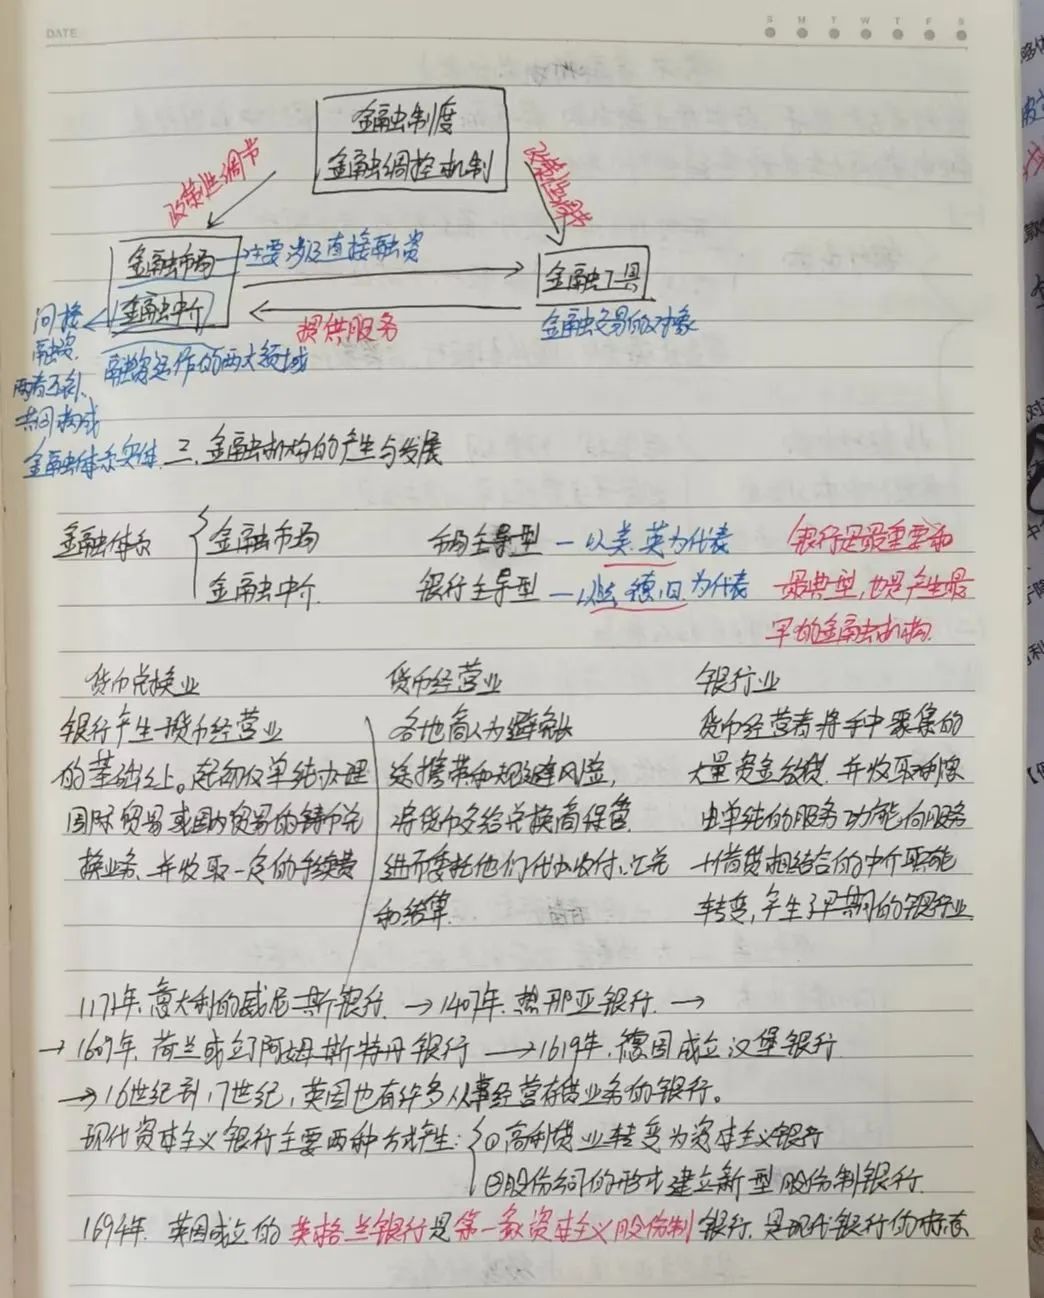 DATE
S M T W T F S
金融制度
金融调控机制
政策性调节
政策性调节
金融市场 主要涉及直接融资
金融中介
金融工具
提供服务
金融交易的对象
间接
融资.
两者互补、
共同构成
金融体系实体.
融资运作的两大领域
三、金融机构的产生与发展
金融体系
金融市场 市场主导型 — 以美.英为代表
金融中介. 银行主导型 — 以法.德.日为代表
银行是最重要和
最典型,也是产生最
早的金融机构.
货币兑换业
银行产生于货币经营业
的基础之上。起初仅单纯办理
国际贸易或国内贸易的铸币兑
换业务、并收取一定的手续费
货币经营业
各地商人为避免长
途携带和规避风险,
将货币交给兑换商保管.
进而委托他们代办收付、汇兑
和结算.
银行业
货币经营者将手中聚集的
大量资金放贷.并收取利息
由单纯的服务功能向服务
与借贷相结合的中介职能
转变,产生了早期的银行业.
1171年.意大利的威尼斯银行. → 1407年.热那亚银行. →
→ 1609年.荷兰成立了阿姆斯特丹银行 → 1619年.德国成立汉堡银行
→ 16世纪到17世纪,英国也有许多从事经营存贷业务的银行。
现代资本主义银行主要两种方式产生: ①高利贷业转变为资本主义银行
②股份公司的形式建立新型股份制银行.
1694年.英国成立的英格兰银行是第一家资本主义股份制银行.是现代银行的标志